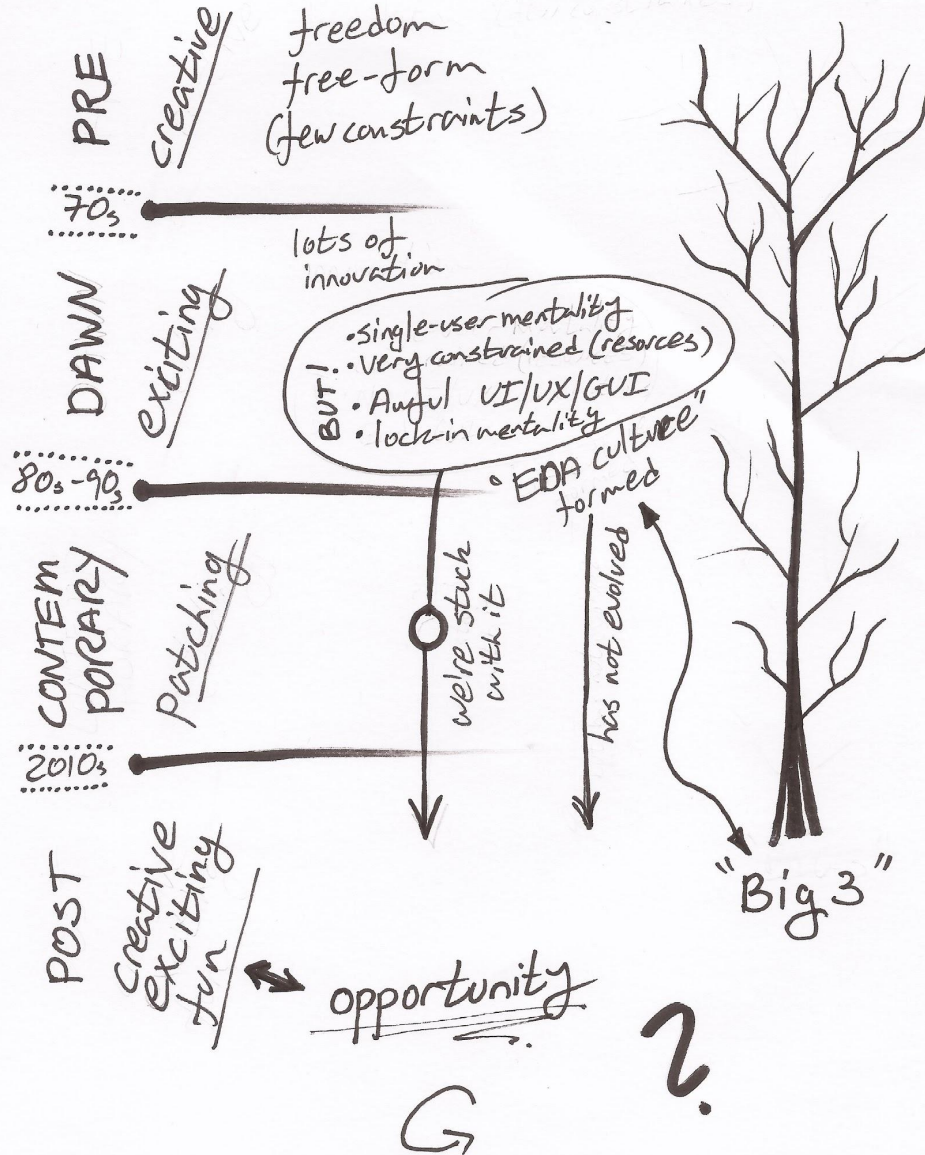 PRE
creative
freedom
free-form
(few constraints)
70s
lots of
innovation
DAWN
exciting
BUT!
• single-user mentality
• very constrained (resorces)
• Awful UI/UX/GUI
• lock-in mentality
• "EDA culture"
formed
80s-90s
CONTEM
PORARY
Patching
we're stuck
with it
has not evolved
2010s
POST
creative
exciting
fun
opportunity
"Big 3"
?